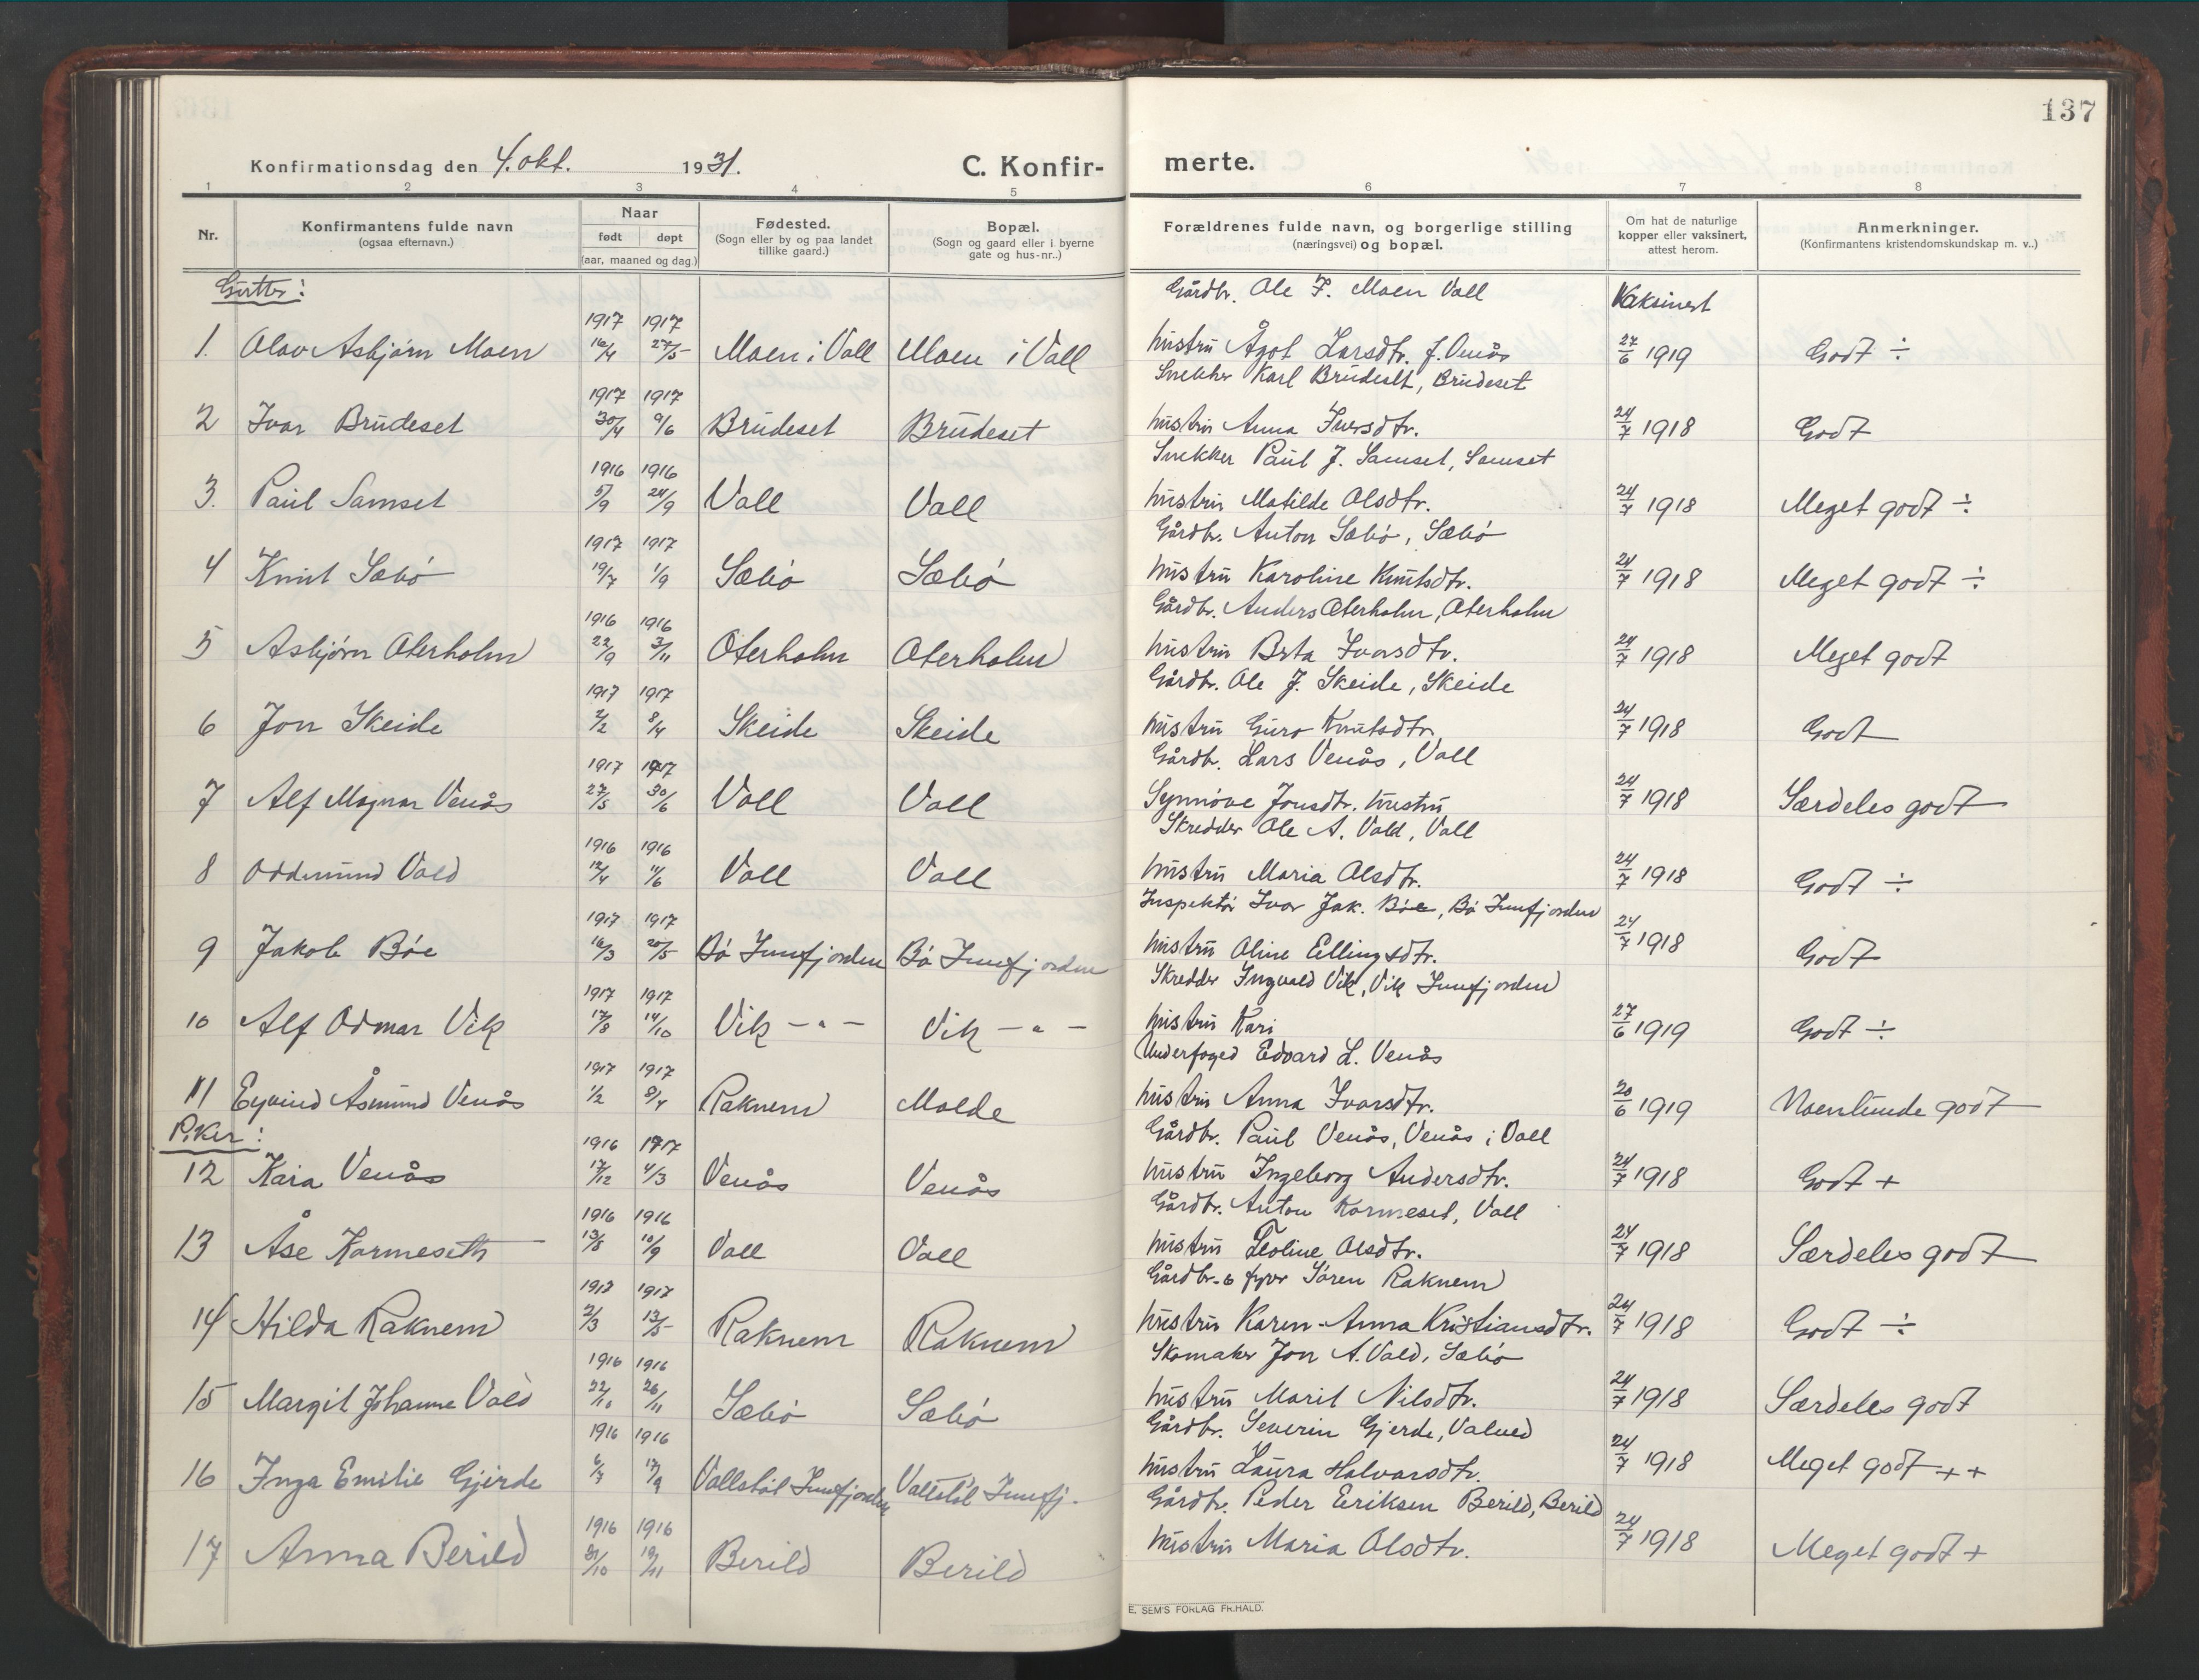 137
Konfirmationsdag den 4. okt. 1931. C. Konfir- merte.
1 2 3 4 5 6 7 8
Nr. Konfirmantens fulde navn (ogsaa efternavn.) Naar født døpt (aar, maaned og dag.) Fødested. (Sogn eller by og paa landet tillike gaard.) Bopæl. (Sogn og gaard eller i byerne gate og hus-nr..) Forældrenes fulde navn, og borgerlige stilling (næringsvei) og bopæl. Om hat de naturlige kopper eller vaksinert, attest herom. Anmerkninger. (Konfirmantens kristendomskundskap m. v..)
Gutter:
Gårdbr. Ole F. Moen Voll Vaksinert
1917 1917
1. Olav Asbjørn Moen 16/4 27/5 Moen i Voll Moen i Voll hustru Ågot Larsdtr. f. Venås 27/6 1919 Godt ÷
Snekker Karl Brudeset, Brudeset
1917 1917
2 Ivar Brudeset 30/4 9/6 Brudeset Brudeset hustru Anna Iversdtr. 24/7 1918 Godt
Snekker Paul J. Samset, Samset
1916 1916
3. Paul Samset 5/9 24/9 Voll Voll hustru Matilde Olsdtr. 24/7 1918 Meget godt ÷
Gårdbr. Anton Sæbø, Sæbø
1917 1917
4 Knut Sæbø 19/7 1/9 Sæbø Sæbø hustru Karoline Knutsdtr. 24/7 1918 Meget godt ÷
Gårdbr. Anders Oterholm, Oterholm
1916 1916
5 Asbjørn Oterholm 22/9 3/11 Oterholm Oterholm hustru Brta Ivarsdtr. 24/7 1918 Meget godt
Gårdbr. Ole J. Skeide, Skeide
1917 1917
6 Jon Skeide 2/2 8/4 Skeide Skeide hustru Guro Knutsdtr. 24/7 1918 Godt
Gårdbr. Lars Venås, Voll
1917 1917
7 Alf Magnar Venås 27/5 30/6 Voll Voll Synnøve Jonsdtr. hustru 24/7 1918 Særdeles godt
Skredder Ole A. Vold, Voll
1916 1916
8 Oddmund Vold 12/4 11/6 Voll Voll hustru Maria Olsdtr. 24/7 1918 Godt ÷
Inspektør Ivar Jak. Bøe, Bø Innfjorden
1917 1917
9 Jakob Bøe 16/3 20/5 Bø Innfjorden Bø Innfjorden hustru Oline Ellingsdtr. 24/7 1918 Godt
Skredder Ingvald Vik, Vik Innfjorden
1917 1917
10 Alf Odmar Vik 17/8 14/10 Vik – " – Vik – " – hustru Kari 27/6 1919 Godt ÷
Underfoged Edvard L. Venås
1917 1917
11 Eyvind Åsmund Venås 1/2 8/4 Raknem Molde hustru Anna Ivarsdtr. 20/6 1919 Noenlunde godt
Piker:
Gårdbr. Paul Venås, Venås i Voll
1916 1917
12 Kåra Venås 17/12 4/3 Venås Venås hustru Ingeborg Andersdtr. 24/7 1918 Godt +
Gårdbr. Anton Kormeset, Voll
1916 1916
13 Åse Kormeseth 13/8 10/9 Voll Voll hustru Teoline Olsdtr. 24/7 1918 Særdeles godt
Gårdbr. o fyrv Søren Raknem
1917 1917
14 Hilda Raknem 2/3 13/5 Raknem Raknem hustru Karen-Anna Kristiansdtr. 24/7 1918 Godt ÷
Skomaker Jon A. Vold, Sæbø
1916 1916
15 Margit Johanne Vold 22/10 26/11 Sæbø Sæbø hustru Marit Nilsdtr. 24/7 1918 Særdeles godt
Gårdbr. Severin Gjerde,
1916 1916
16 Inga Emilie Gjerde 6/7 17/9 Vollstøl Innfjorden Vollstøl Innfj. hustru Laura Halvarsdtr. 24/7 1918 Meget godt ++
Gårdbr. Peder Eriksen Berild, Berild
1916 1916
17 Anna Berild 31/10 19/11 Berild Berild hustru Maria Olsdtr. 24/7 1918 Meget godt +
E. SEM'S FORLAG FR.HALD.